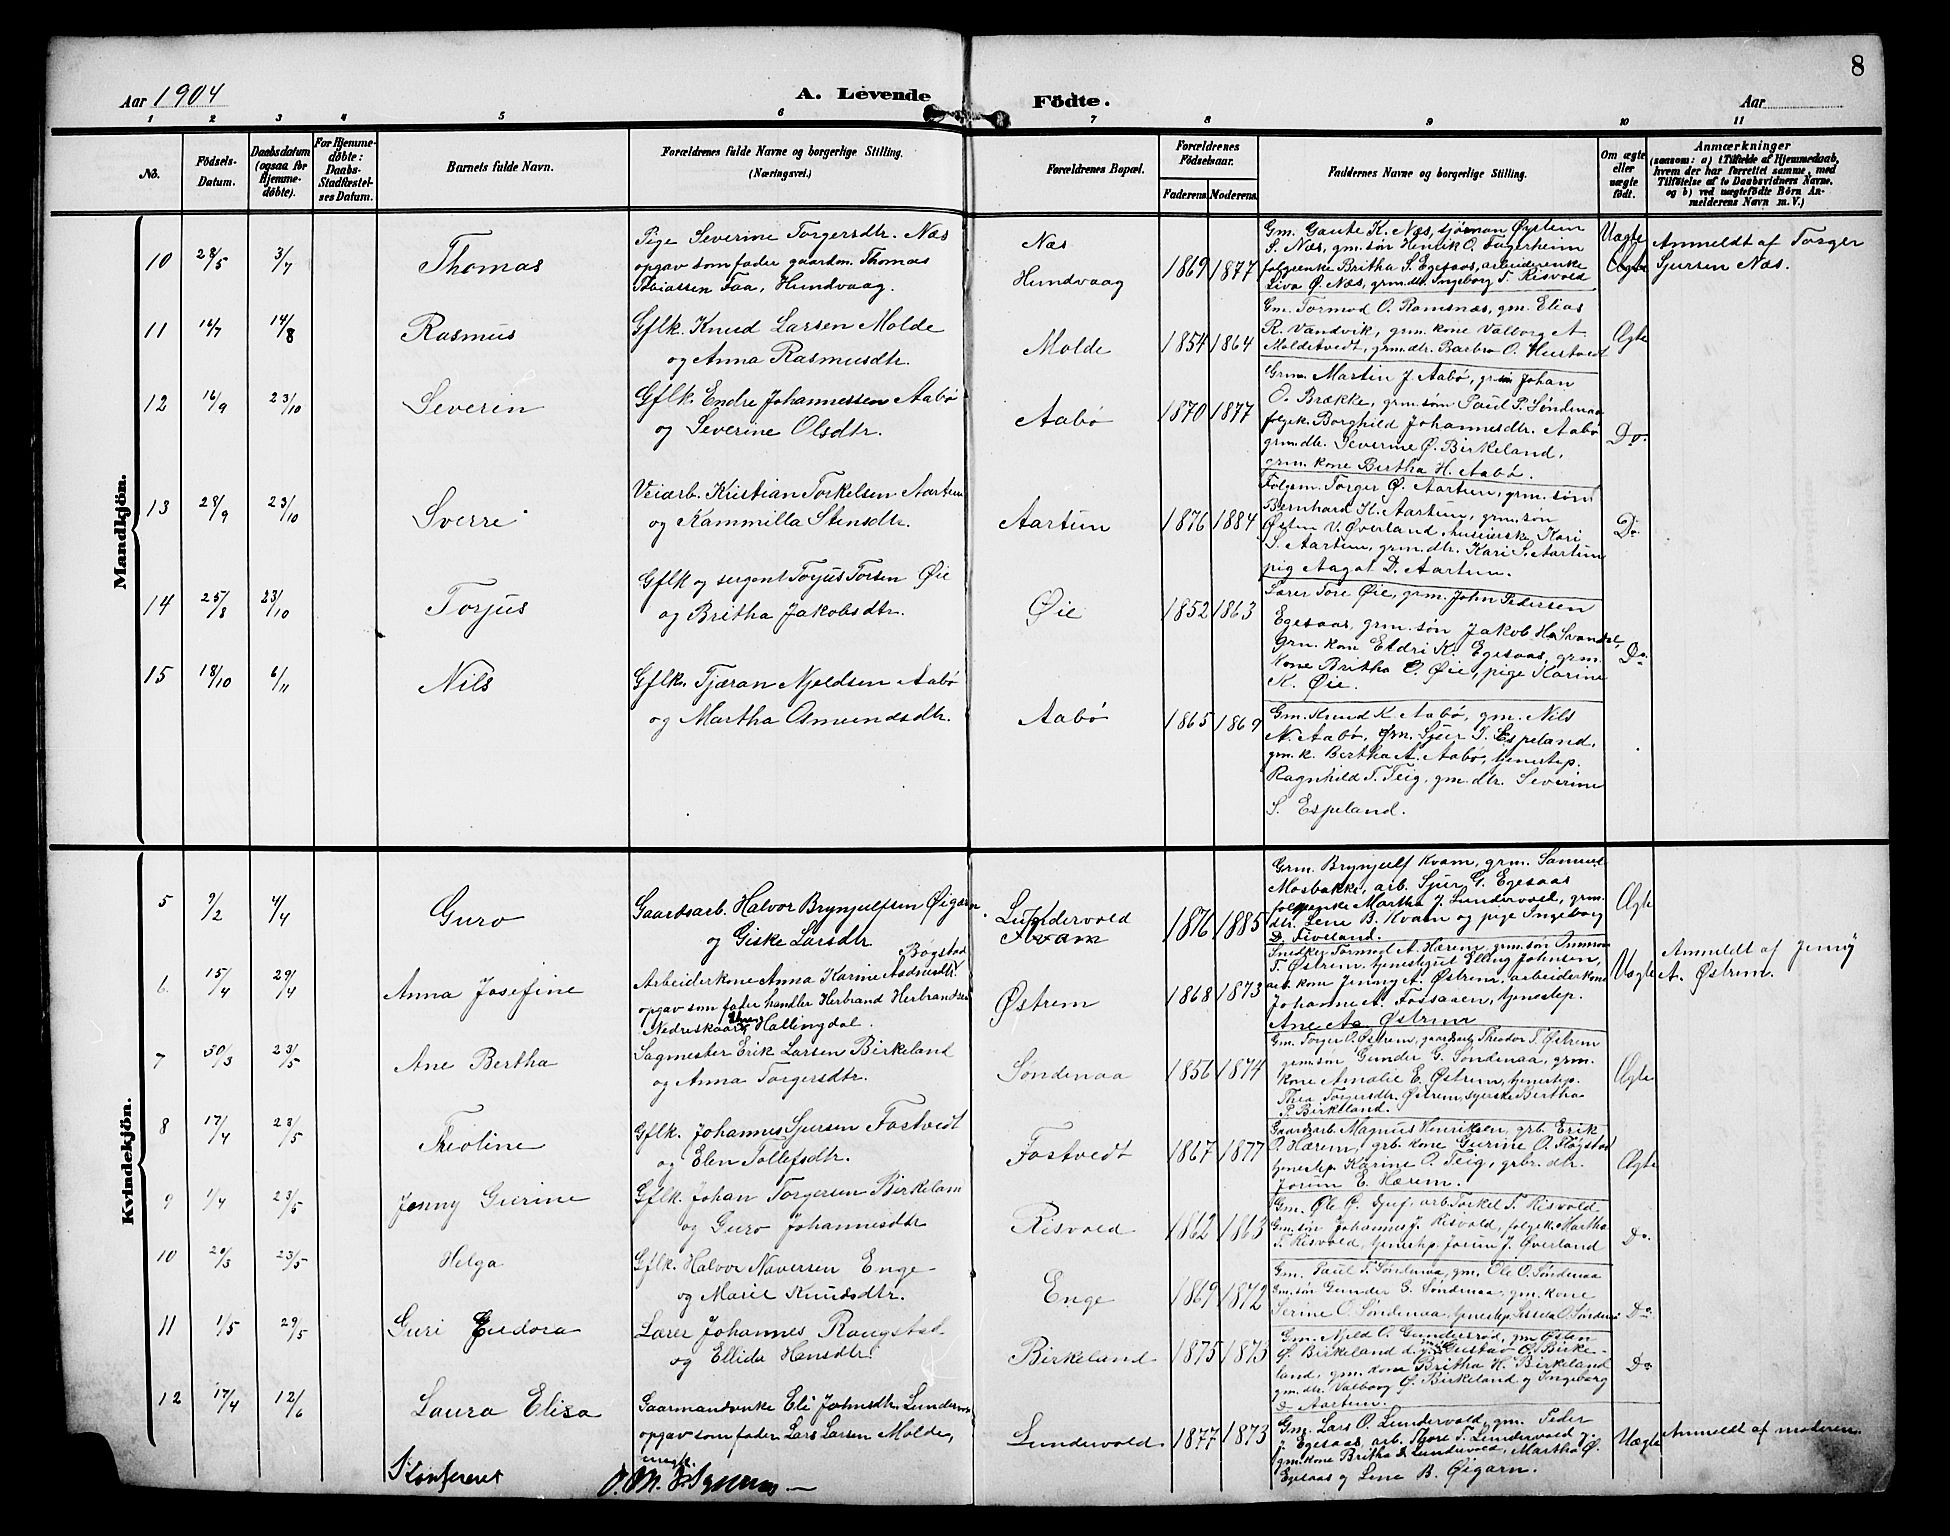 8
Aar 1904
A. Levende Födte.
Aar
1 2 3 4 5 6 7 8 9 10 11
No.
Födsels-Datum.
Daabsdatum (ogsaa for Hjemmedöbte).
For Hjemmedöbte: Daabs-Stadfæstelses Datum.
Barnets fulde Navn.
Forældrenes fulde Navne og borgerlige Stilling.
(Næringsvei.)
Forældrenes Bopæl.
Forældrenes Födselsaar.
Faderens. Moderens.
Faddernes Navne og borgerlige Stilling.
Om ægte eller uægte födt.
Anmærkninger
(saasom: a) i Tilfælde af Hjemmedaab, hvem der har forrettet samme, med Tilföielse af to Daabsvidners Navne, og b) ved uægtefödte Börn Anmelderens Navn m. V.)
Mandkjön.
10 28/5 3/7 Thomas
Pige Severine Torgersdtr. Næs
opgav som fader gaardm. Thomas
Tobiassen Faa, Hundvaag.
Næs
Hundvaag
1869 1877
Gm. Gaute K. Næs, sjöman Øystein
S. Næs, gm. søn Henrik O. Fagerheim
folgeenke Britha S. Egesaas, arbeiderenke
Liva Ø. Næs, grm. dtr. Ingeborg T. Risvold
Uægte
Anmeldt af Torger
Sjursen Næs.
11 16/7 14/8 Rasmus
Gflk. Knud Larsen Molde
og Anna Rasmusdtr.
Molde
1854 1864
Gm. Tormod O. Ramsnæs, gm. Elias
R. Vandvik, grm. kone Valborg A.
Moldetvedt, grm. dtr. Barbro O. Hustvedt
Ægte
12 16/9 23/10 Severin
Gflk. Endre Johannessen Aabø
og Severine Olsdtr.
Aabø
1870 1877
Grm. Martin J. Aabø, grm. Johan
O. Brække, grm. søn Paul P. Søndenaa
folgek. Borghild Johannesdtr. Aabø
grm. dtr. Severine Ø. Birkeland,
grm. kone Bertha H. Aabø.
Do.
13 28/9 23/10 Sverre
Veiarb. Kristian Torkelsen Aartun
og Kammilla Stensdtr.
Aartun
1876 1884
Folgem. Torger Ø. Aartun, grm. søn
Bernhard H. Aartun, grm. søn
Østen V. Øverland, husierske Kari
S. Aartun, grm. dtr. Kari S. Aartun
pig Aagot D. Aartun.
Do.
14 25/8 23/10 Torjus
Gflk og sergent Torjus Torsen Øie
og Britha Jakobsdtr.
Øie
1852 1863
Lærer Tore Øie, grm. John Pedersen
Egesaas, grm. søn Jakob H. Svandal,
grm. kon Eldri K. Egesaas, grm.
kone Britha O. Øie, pige Karine
K. Øie.
Do.
15 18/10 6/11 Nils
Gflk. Tjæran Njeldsen Aabø
og Martha Amundsdtr.
Aabø
1865 1869
Gm. Knud K. Aabø, gm. Nils
N. Aabø, grm. Sjur I. Espeland,
gm. k. Bertha A. Aabø, tjenestep.
Ragnhild T. Teig, gm. dtr. Severine
S. Espeland.
Kvindekjön.
5 9/2 4/4 Guro
Gaardsarb. Halvor Brynjulfsen Øigarn.
og Giske Larsdtr
Lundervold
Kvam
1876 1885
Grm. Brynjulf Kvam, grm. Samuel
Mosbakke, arb. Sjur G. Egesaas
folgeenke Martha J. Lundervold, grm.
dtr. Lene B. Kvam og pige Ingeborg
D. Fiveland.
Ægte
6 15/4 29/4 Anna Josefine
Bøgstad
Arbeiderkone Anna Karine Asdnudtr.
opgav som fader handler Herbrand Herbrandsen
Nedreskaar, Hallingdal.
Østrem
1868 1873
Snedker Tormod A. Hærem, grm. søn
T. Østrem, tjenestgut Elling Johnsen,
arb. kone Jenny A. Østrem, arbeiderkone
Johanne A. Fossasen, tjenestep.
Ane A. Østrem
Uægte
Anmeldt af Jenny
A. Østrem.
7 30/3 23/5 Ane Bertha
Sagmester Erik Larsen Birkeland
og Anna Torgersdtr.
Søndenaa
1856 1874
Gm. Torger O. Østrem, gaardsarb. Theodor T. Østrem
grm. søn Gunder G. Søndenaa, grm.
kone Amalie E. Østrem, tjenestep.
Thea Torgersdtr. Østrem, syerske Bertha
P. Birkeland.
Ægte
8 17/4 23/5 Theoline
Gflk. Johannes Sjursen Fostvedt
og Elen Tollefsdtr.
Fostvedt
1867 1877
Gaardsarb. Magnus Henriksen, grb. Erik
O. Hærem, grb. kone Gurine O. Fløgstad
tjenestep. Karine O. Teig, grbr. dtr.
Jorun E. Hærem.
Ægte
9 1/4 23/5 Jenny Gurine
Gflk. Johan Torgersen Birkelan
og Guro Johannesdtr
Risvold
1862 1863
Gm. Ole Ø. Djuf, arb. Torkel T. Risvold
Gm. søn Johannes J. Risvold, folgek. Martha
T. Risvold, tjenestep. Jorun J. Øverland
Do.
10 20/3 23/5 Helga
Gflk. Halvor Naversen Enge
og Marie Knudsdtr.
Enge
1869 1872
Gm. Paul T. Søndenaa, gm. Ole O. Søndenaa
Gm. søn Gunder E. Søndenaa, gm. kone
Serine O. Søndenaa, tjenestep. Sissela O. Søndenaa
Do.
11 1/5 29/5 Guri Eudora
Lærer Johannes Raugstad
og Ellida Hansdtr.
Birkeland
1875 1873
Gm. Njeld O. Gundersrød, gm. Østen
Ø. Birkeland d.y. Gustav O. Birke-
land, gm. kone Britha H. Birkeland
gm. dtr. Valborg Ø. Birkeland og Ingeborg
D. Aartun.
Do
12 17/4 12/6 Laura Elisa
Gaarmandsenke Eli Johnsdtr. Lundervo
opgav som fader Lars Larsen Molde,
ungk.
Lundervold
1877 1873
Gm. Lars O. Lundervold, gm. Peder
J. Egesaas, arb. Thore T. Lundervold g.
gm. kone Britha L. Lundervold, Martha O.
Egesaas og Lene B. Øigarn.
Uægte
Anmeldt af moderen.
Konfereret